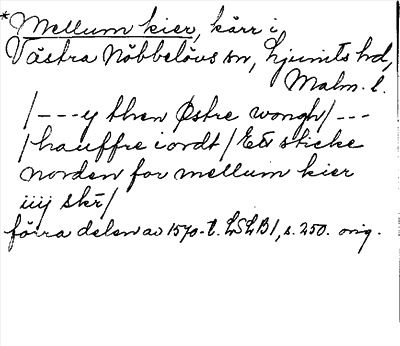 *Mellum kier, kärr i
Västra Nöbbelövs sn, Ljunits hd,
Malm. l.
/---y then Østre wongh/---
/hauffre iordt/ Ett sticke
norden for mellum kier
iiij skr/
förra delen av 1570-t. LSLB1, s. 250. orig.